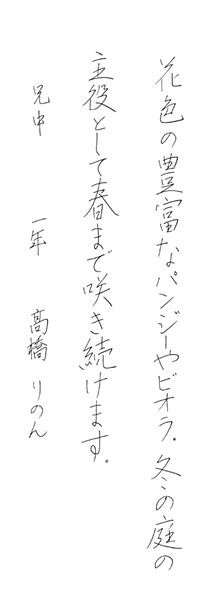 花色の豊富なパンジーやビオラ。冬の庭の
主役として春まで咲き続けます。
兄中　一年　髙橋りのん